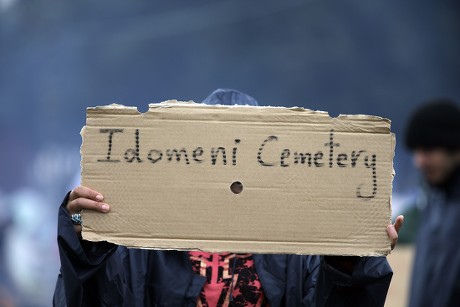 Idomeni Cemetery